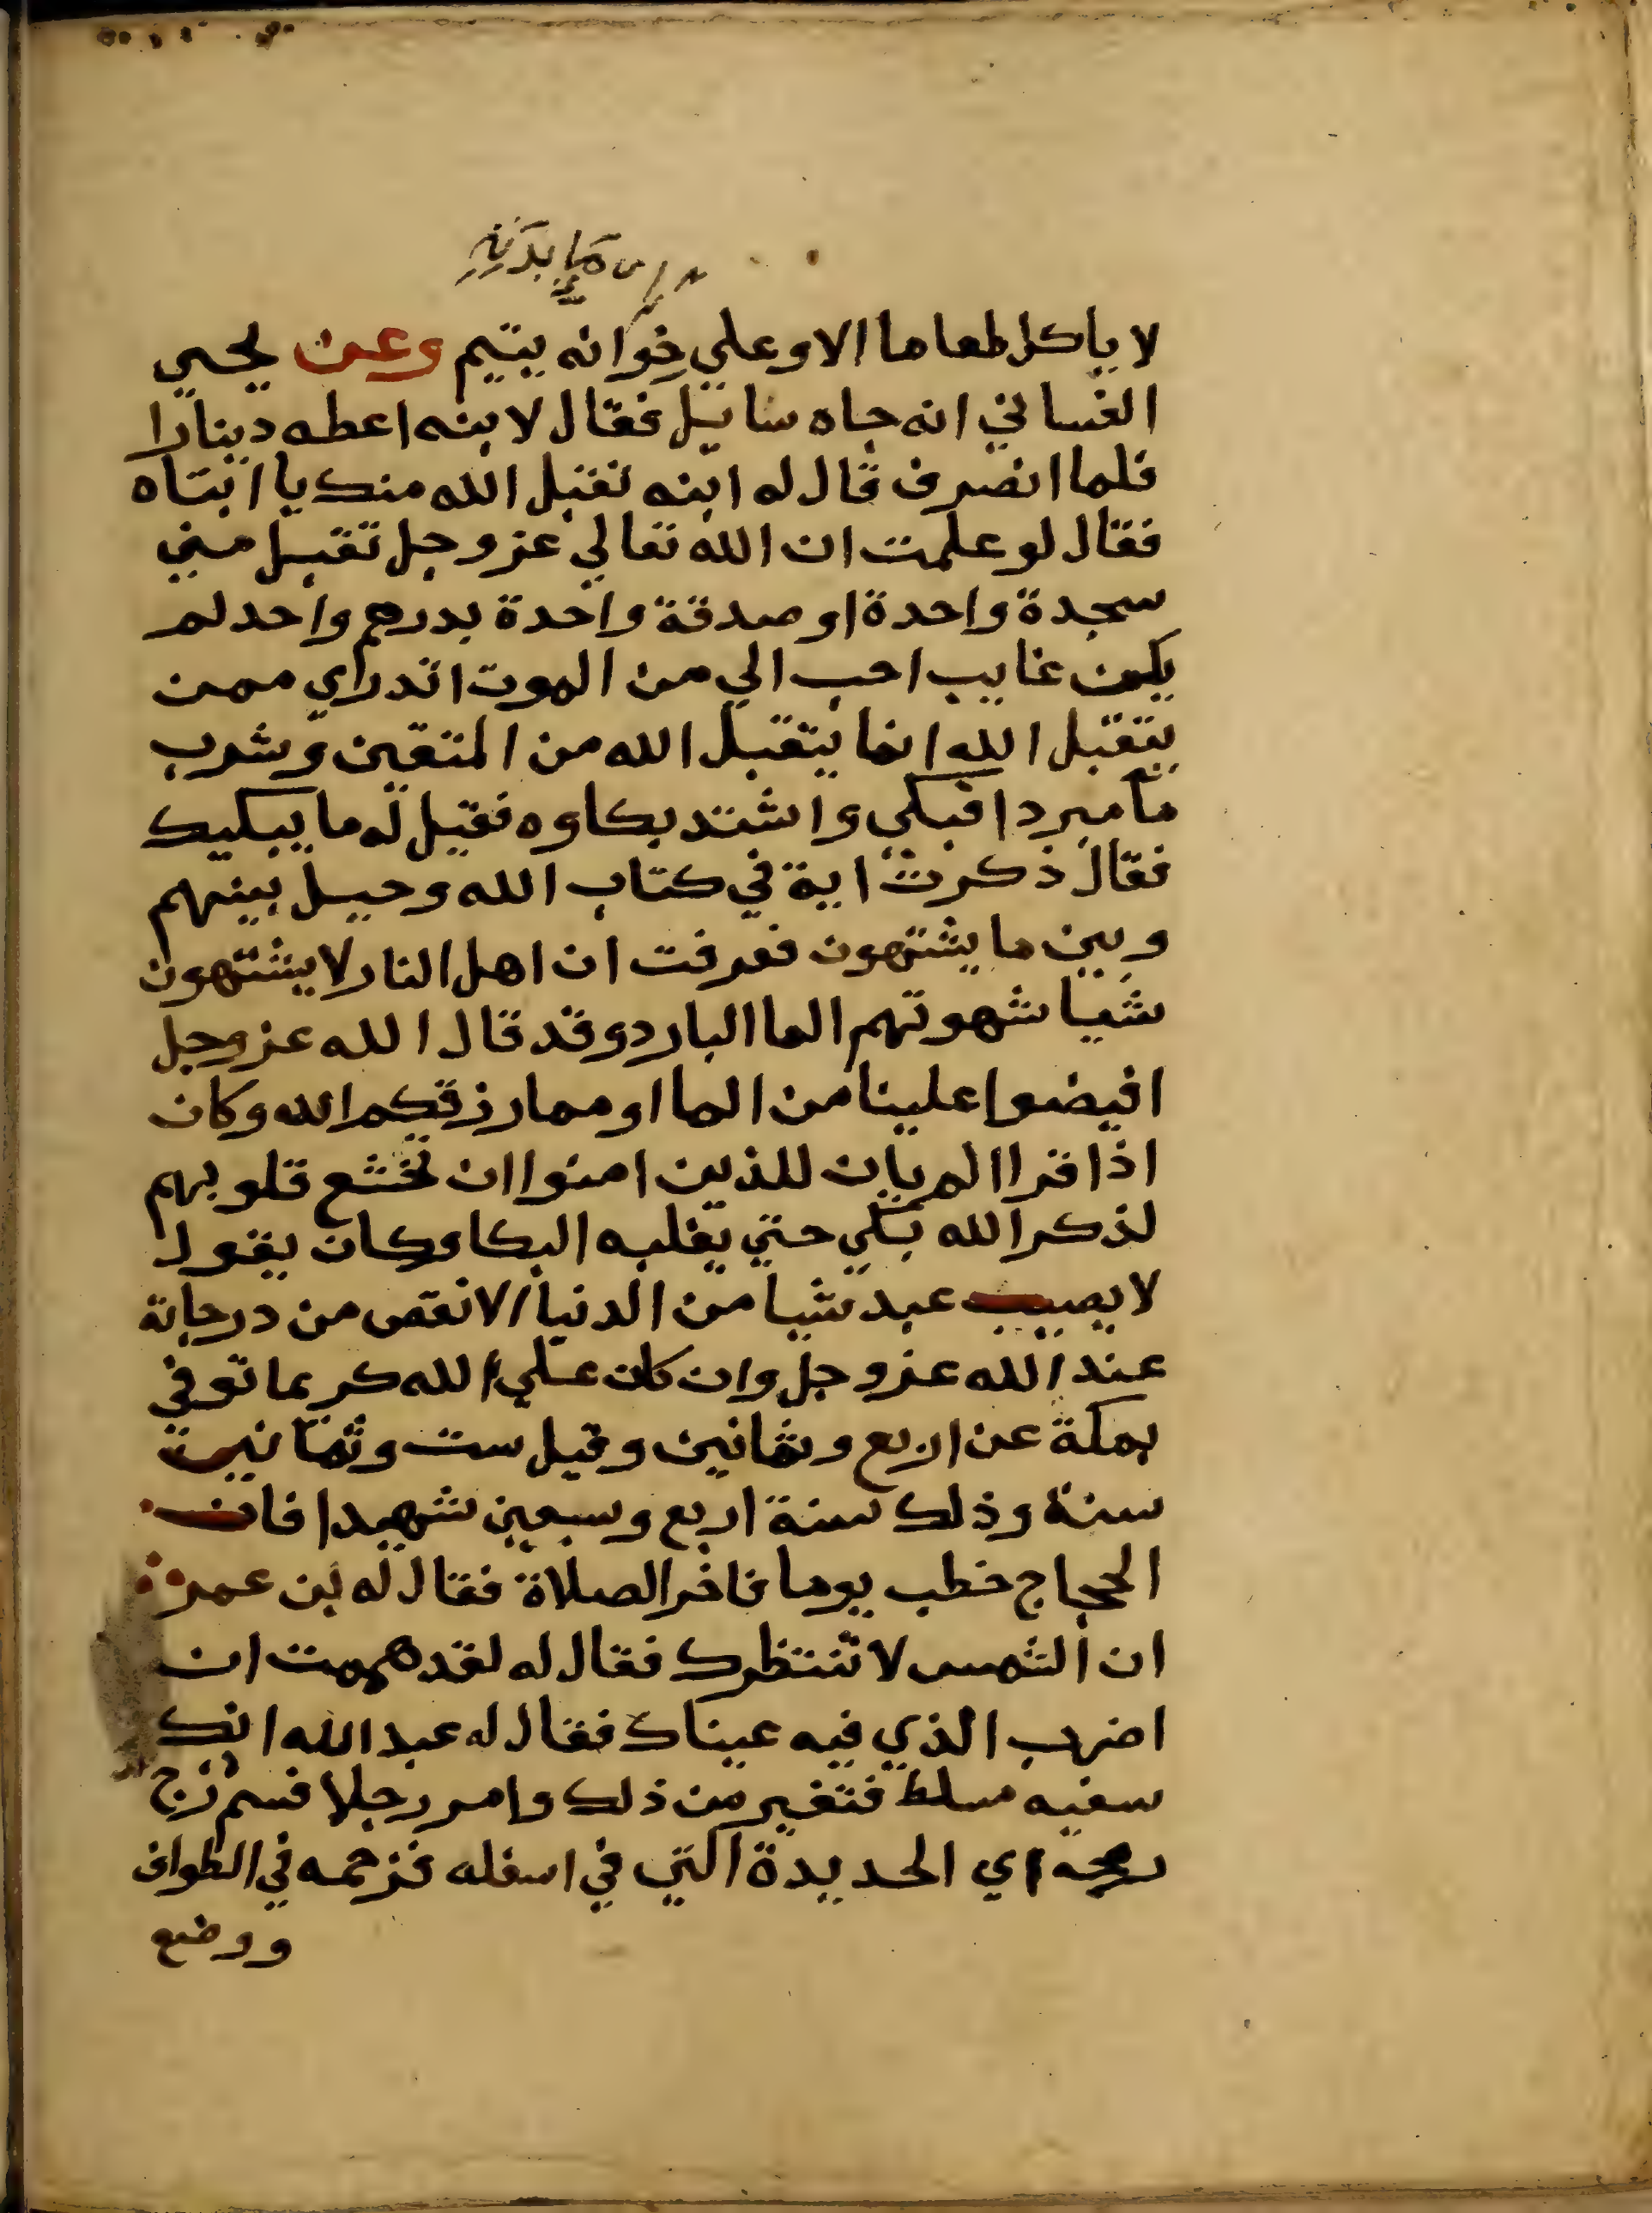 لا ياكل طعاما الا وعلي خوانه يتيم وعن يحيي
الغساني انه جاه سايل فقال لابنه اعطه دينارا
فلما انصرف قال له ابنه تقبل الله منك يا ابتاه
فقال لو علمت ان الله تعالي عز وجل تقبل مني
سجدة واحدة او صدقة واحدة بدرهم واحد لم
يكن غايب احب الي من الموت اتدراي ممن
يتقبل الله انما يتقبل الله من المتقين وشرب
ما مبردا فبكي واشتد بكاوه فقيل له ما يبكيك
فقال ذكرت اية في كتاب الله وحيل بينهم
وبين ما يشتهون فعرفت ان اهل النار لا يشتهون
شيا شهوتهم الما البارد وقد قال الله عز وجل
افيضوا علينا من الما او مما رزقكم الله وكان
اذا قرا الم يان للذين امنوا ان تخشع قلوبهم
لذكر الله بكي حتي يغلبه البكا وكان يقول
لا يصيب عبد شيا من الدنيا الا نقص من درجاته
عند الله عز وجل وان كان علي الله كريما توفي
بمكة عن اربع وثمانين وقيل ست وثمانين
سنة وذلك سنة اربع وسبعين شهيدا فان
الحجاج خطب يوما فاخر الصلاة فقال له بن عمر
ان الشمس لا تنتظرك فقال له لقد هممت ان
اضرب الذي فيه عيناك فقال له عبد الله انك
سفيه مسلط فتغير من ذلك وامر رجلا فسم زج
رمحه اي الحديدة التي في اسفله فزحمه في الطواف
ووضع